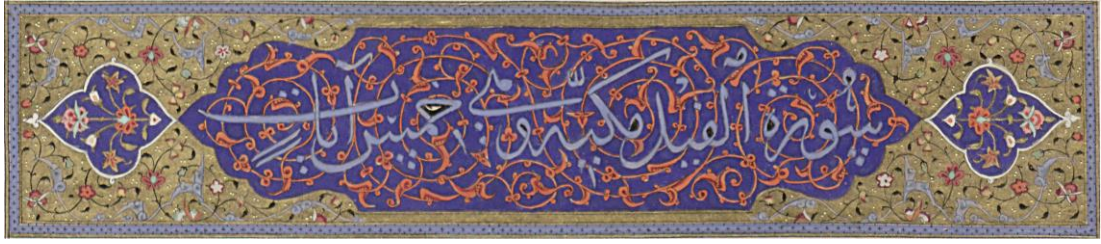 سورة الفيل مكية وهي خمس آيات